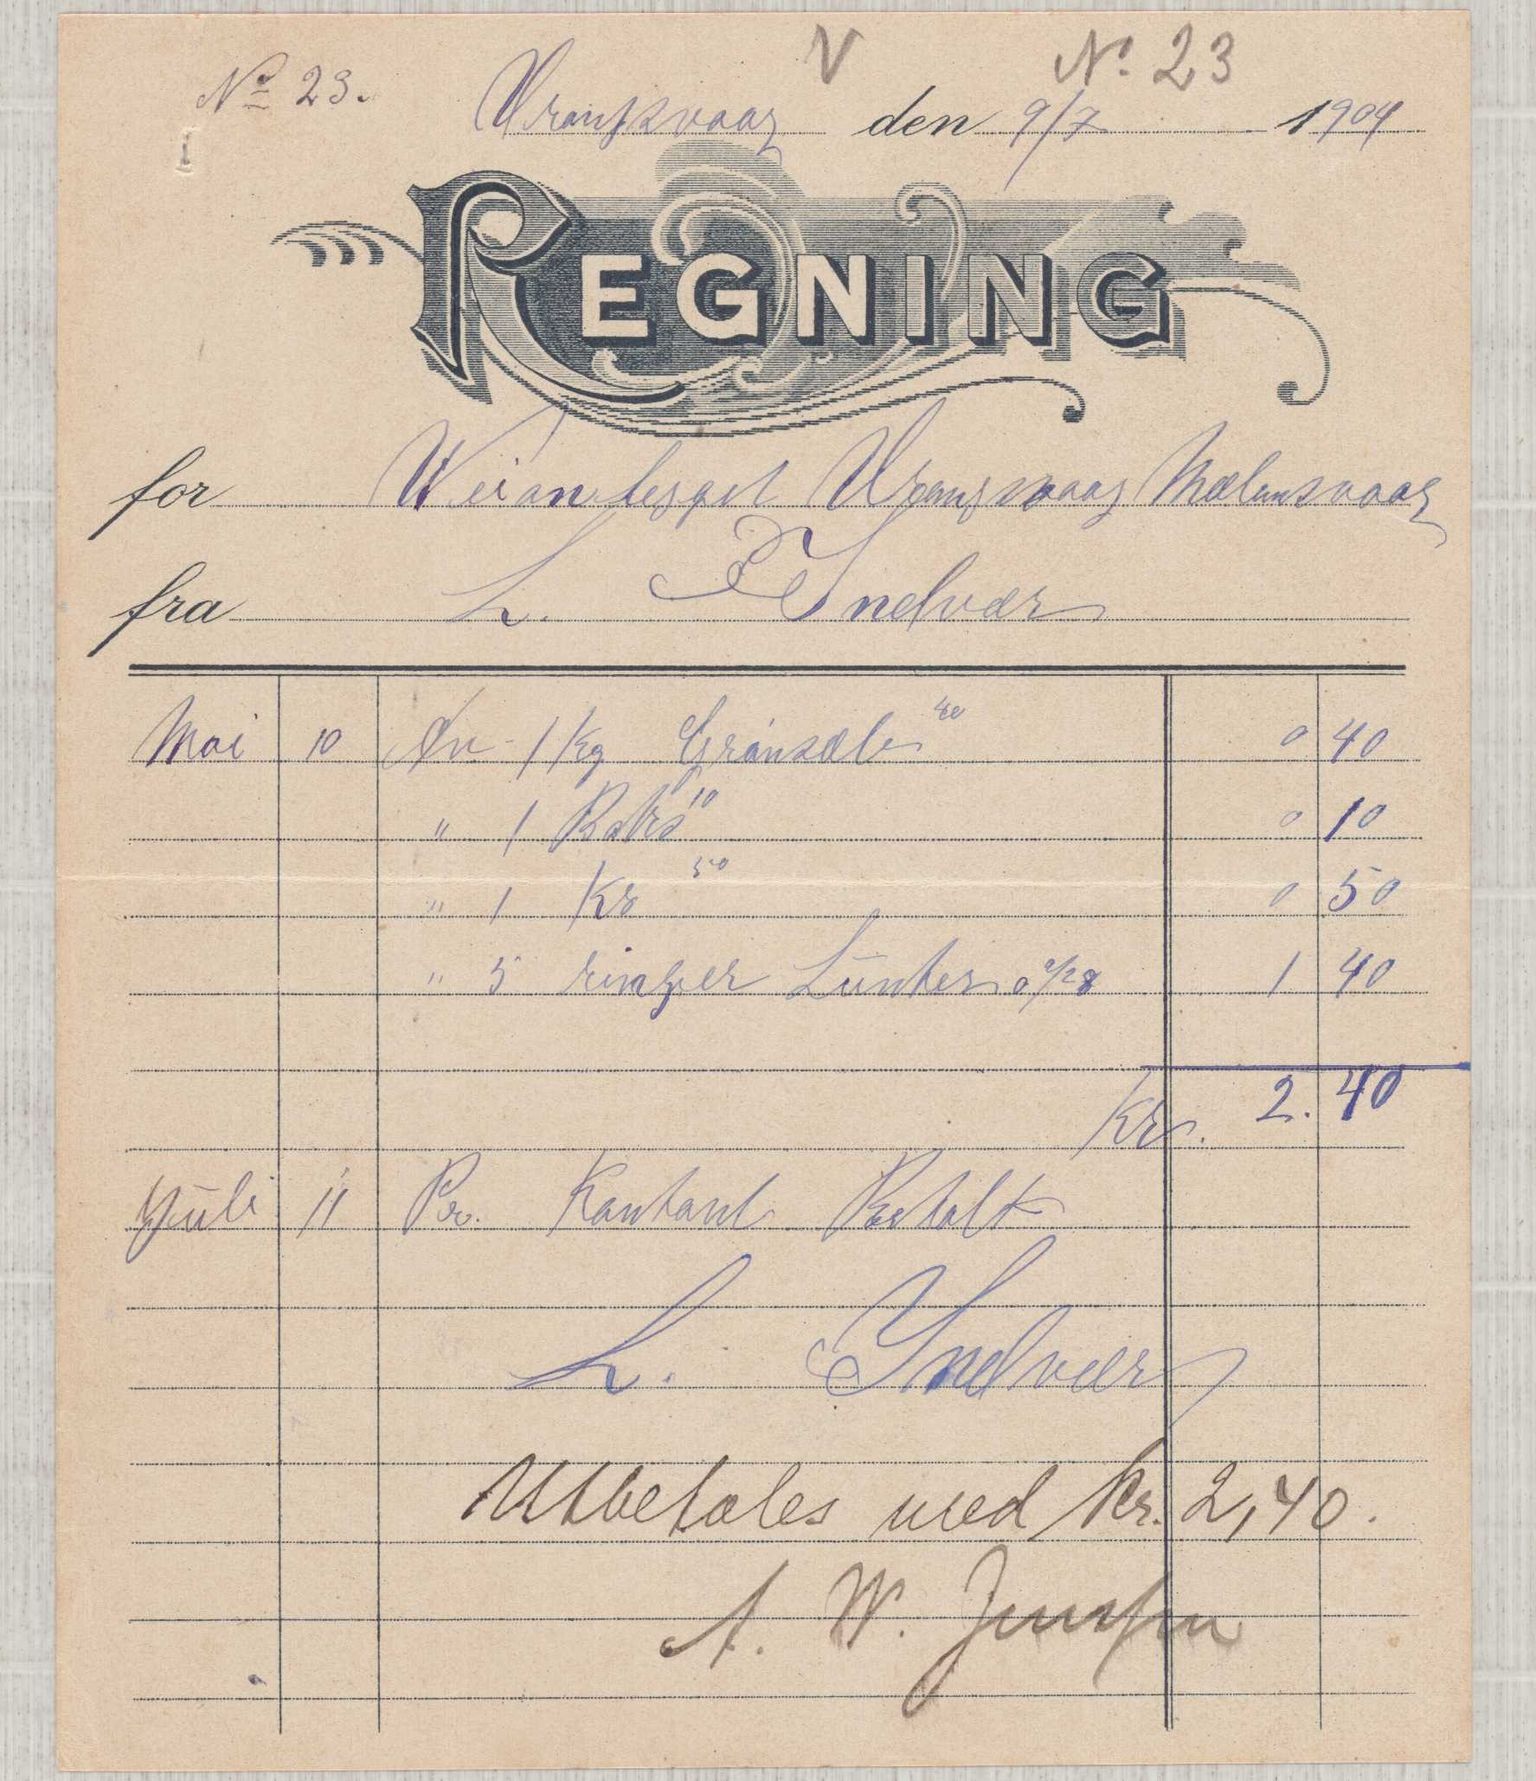 No 23. V No. 23
Vrangsvaag den 9/7 1904
REGNING
for Veianlegget Vrangsvaag Melumsvaag
fra L. Indvær
Mai 10 An 1 Kg Grønsæbe 40 0 40
" 1 10 0 10
" 1 Kr 50 0 50
" 5 ringer Lunter a/28 1 40
Kr. 2.40
Juli 11 Pr. Kontant Betalt
L. Indvær
Utbetales med kr. 2,40.
A. W. Jenssen